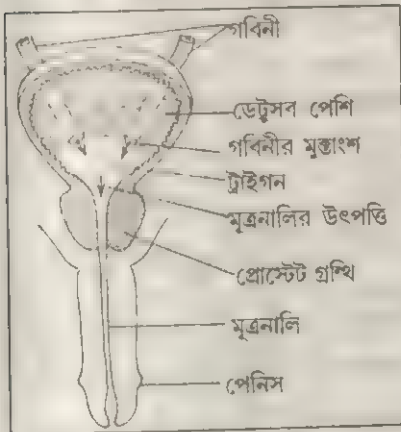 গবিনী
ডেট্রুসব পেশি
গবিনীর মুক্তাংশ
ট্রাইগন
মূত্রনালির উৎপত্তি
প্রোস্টেট গ্রন্থি
মূত্রনালি
পেনিস